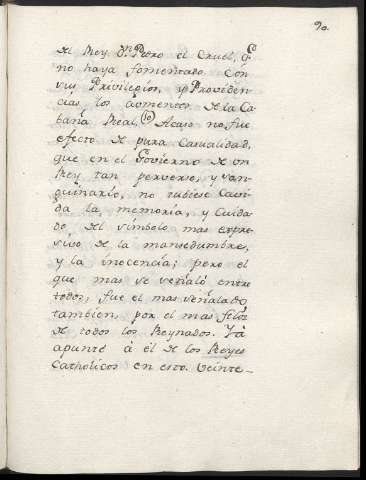 90.
del Rey Dn. Pedro el Cruel, q.
no haya fomentado con
sus Privilegios, y Providen-
cias los aumentos de la Ca-
baña Real. Acaso no fue
efecto de pura casualidad,
que en el Govierno de un
Rey tan perverso, y san-
guinario, no tubiese cavi-
da la memoria, y cuida-
do del simbolo mas expre-
sivo de la mansedumbre,
y la inocencia; pero el
que mas se señaló entre
todos, fue el mas señalado
tambien, por el mas feliz
de todos los Reynados. Yá
apunté á él de los Reyes
Catholicos en esto. Veinte-